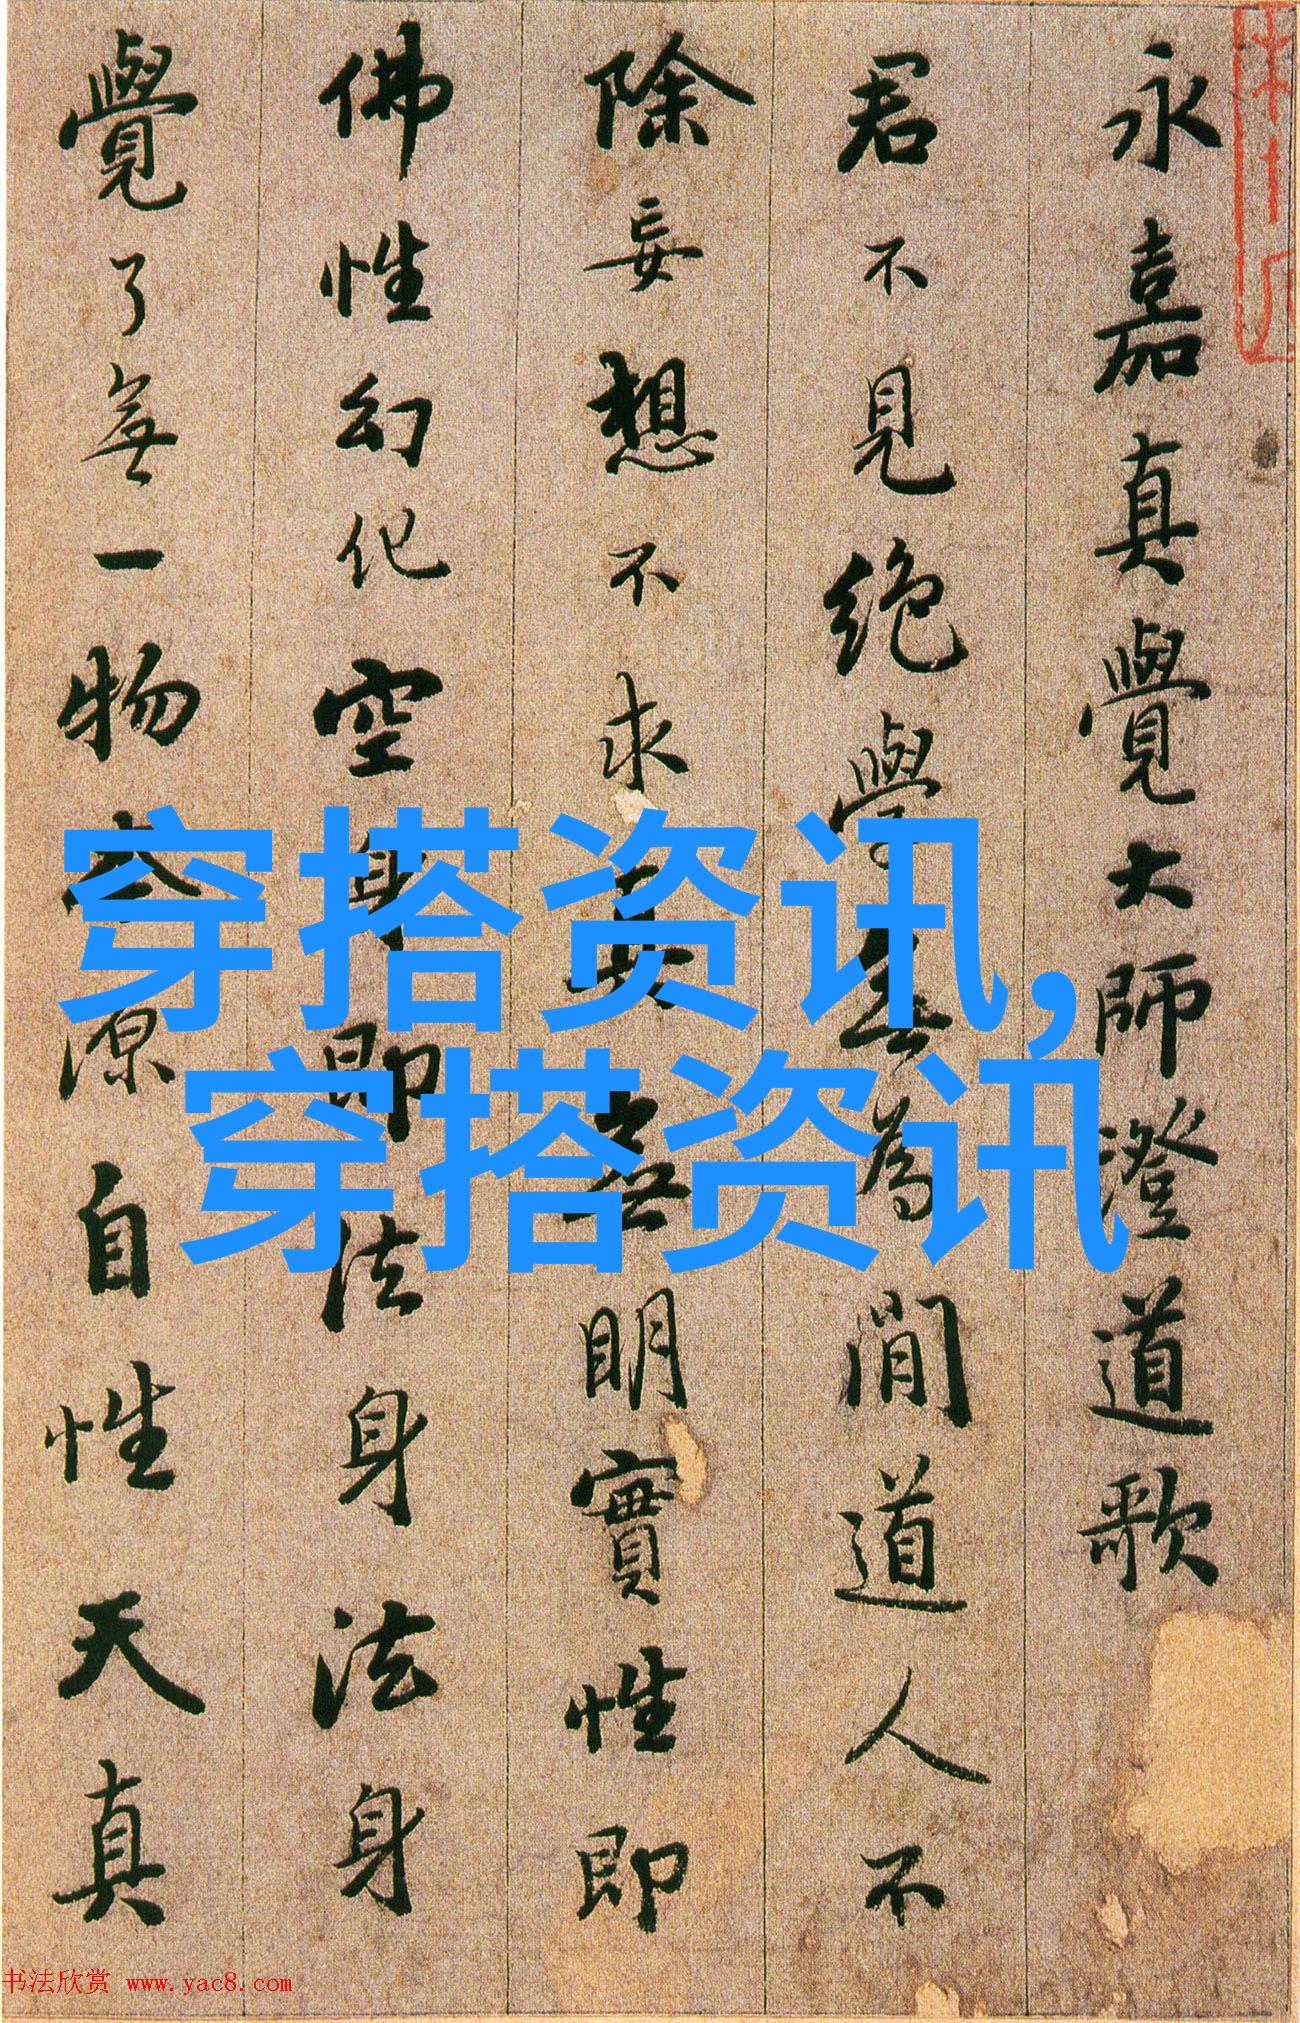 永嘉真覺大師澄道歌
君不見絕學無為閒道人不
除妄想不求真無明實性即
佛性幻化空身即法身法身
覺了無一物本源自性天真
穿搭资讯,
穿搭资讯
书法欣赏 www.yac8.com